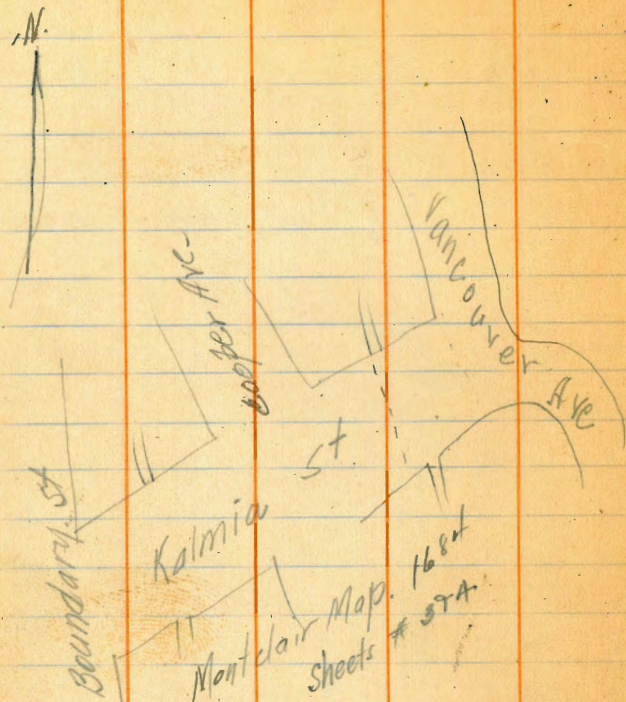 N.
Vancouver Ave
Cooper Ave-
Boundary St
Kalmia St
Montclair Map. 1684
Sheets #